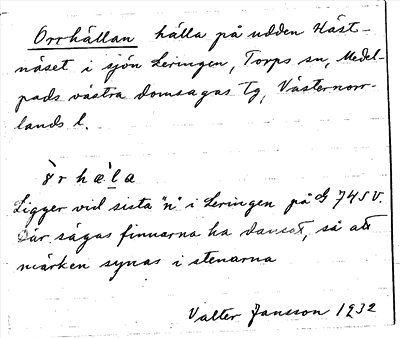 Orrhällan hälla på udden Häst-
näset i sjön Leringen, Torps sn, Medel-
pads västra domsagas tg, Västernorr-
lands l.
Ligger vid sista "n" i Leringen på G 74 SV.
Där sägas finnarna ha dansat, så att
märken synas i stenarna
Valter Jansson 1932